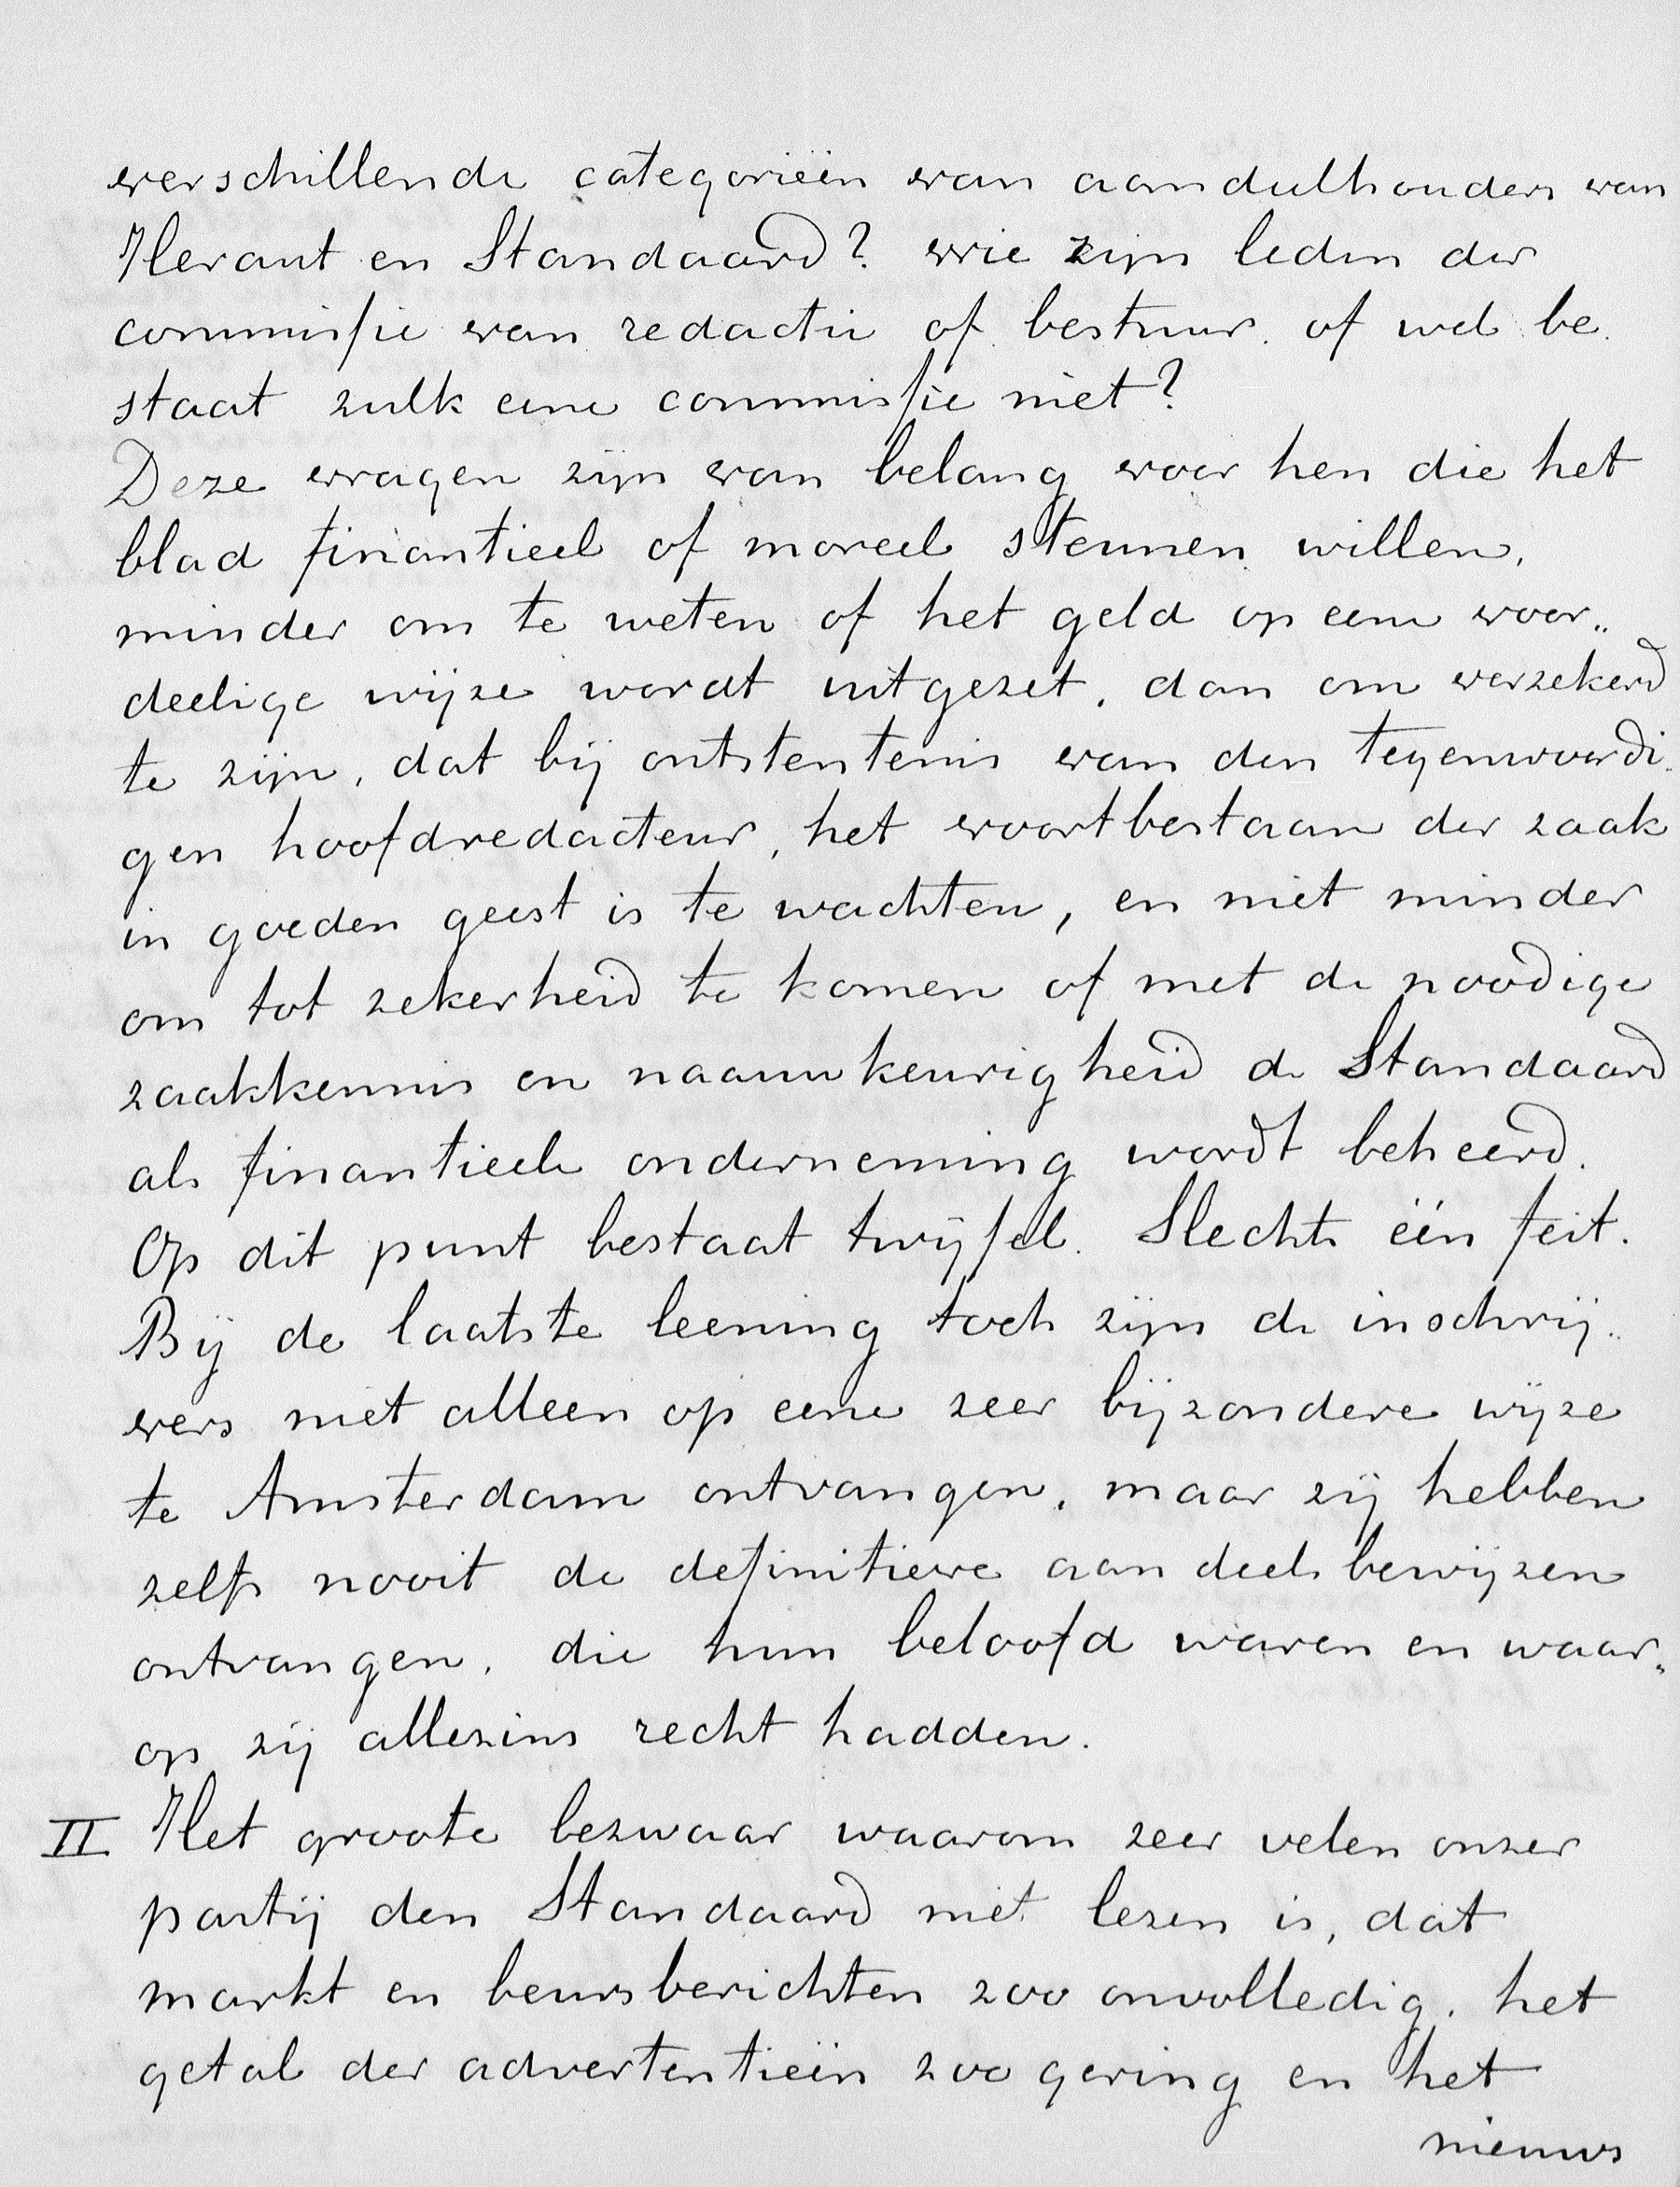 verschillende categorieën van aandeelhouders van
Heraut en Standaard? wie zijn leden der
commissie van redactie of bestuur. of wel be.
staat zulk eene commissie niet?
Deze vragen zijn van belang voor hen die het
blad finantieel of moreel steunen willen,
minder om te weten of het geld op eene voor„
deelige wijze wordt uitgezet, dan om verzekerd
te zijn, dat bij ontstentenis van den tegenwoordi.
gen hoofdredacteur, het voortbestaan der zaak
in goeden geest is te wachten, en niet minder
om tot zekerheid te komen of met de noodige
zaakkennis en naauwkeurigheid de Standaard
als finantieele onderneming wordt beheerd.
Op dit punt bestaat twijfel. Slechts één feit.
Bij de laatste leening toch zijn de inschrij„
vers niet alleen op eene zeer bijzondere wijze
te Amsterdam ontvangen, maar zij hebben
zelfs nooit de definitieve aandeelsbewijzen
ontvangen, die hun beloofd waren en waar„
op zij allezins recht hadden.
II Het groote bezwaar waarom zeer velen onzer
partij den Standaard niet lezen is, dat
markt en beursberichten zoo onvolledig, het
getal der advertentieën zoo gering en het
nieuws